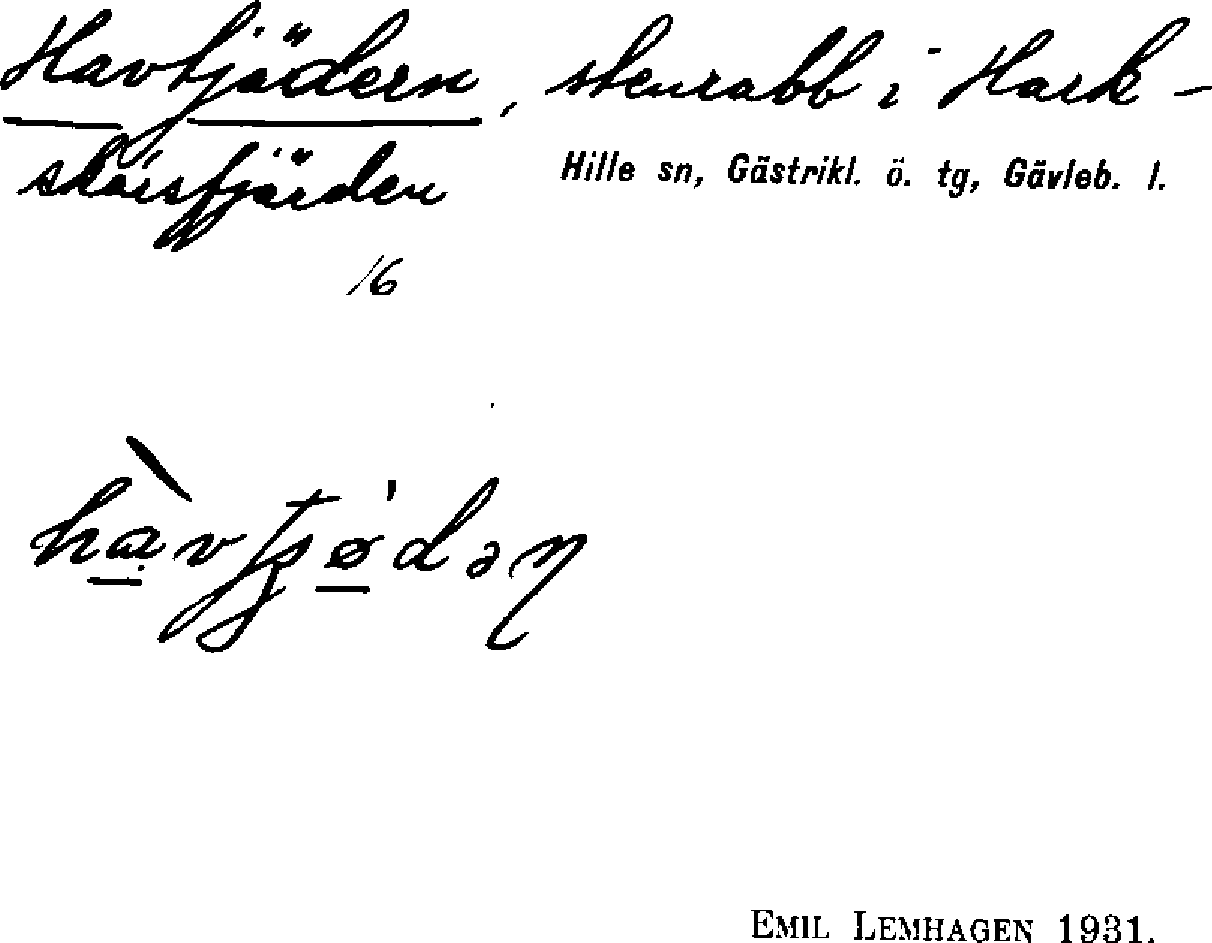 Havfjädern, stenrabb i Hark-
skärsfjärden
Hille sn, Gästrikl. ö. tg, Gävleb. l.
16
EMIL LEMHAGEN 1931.